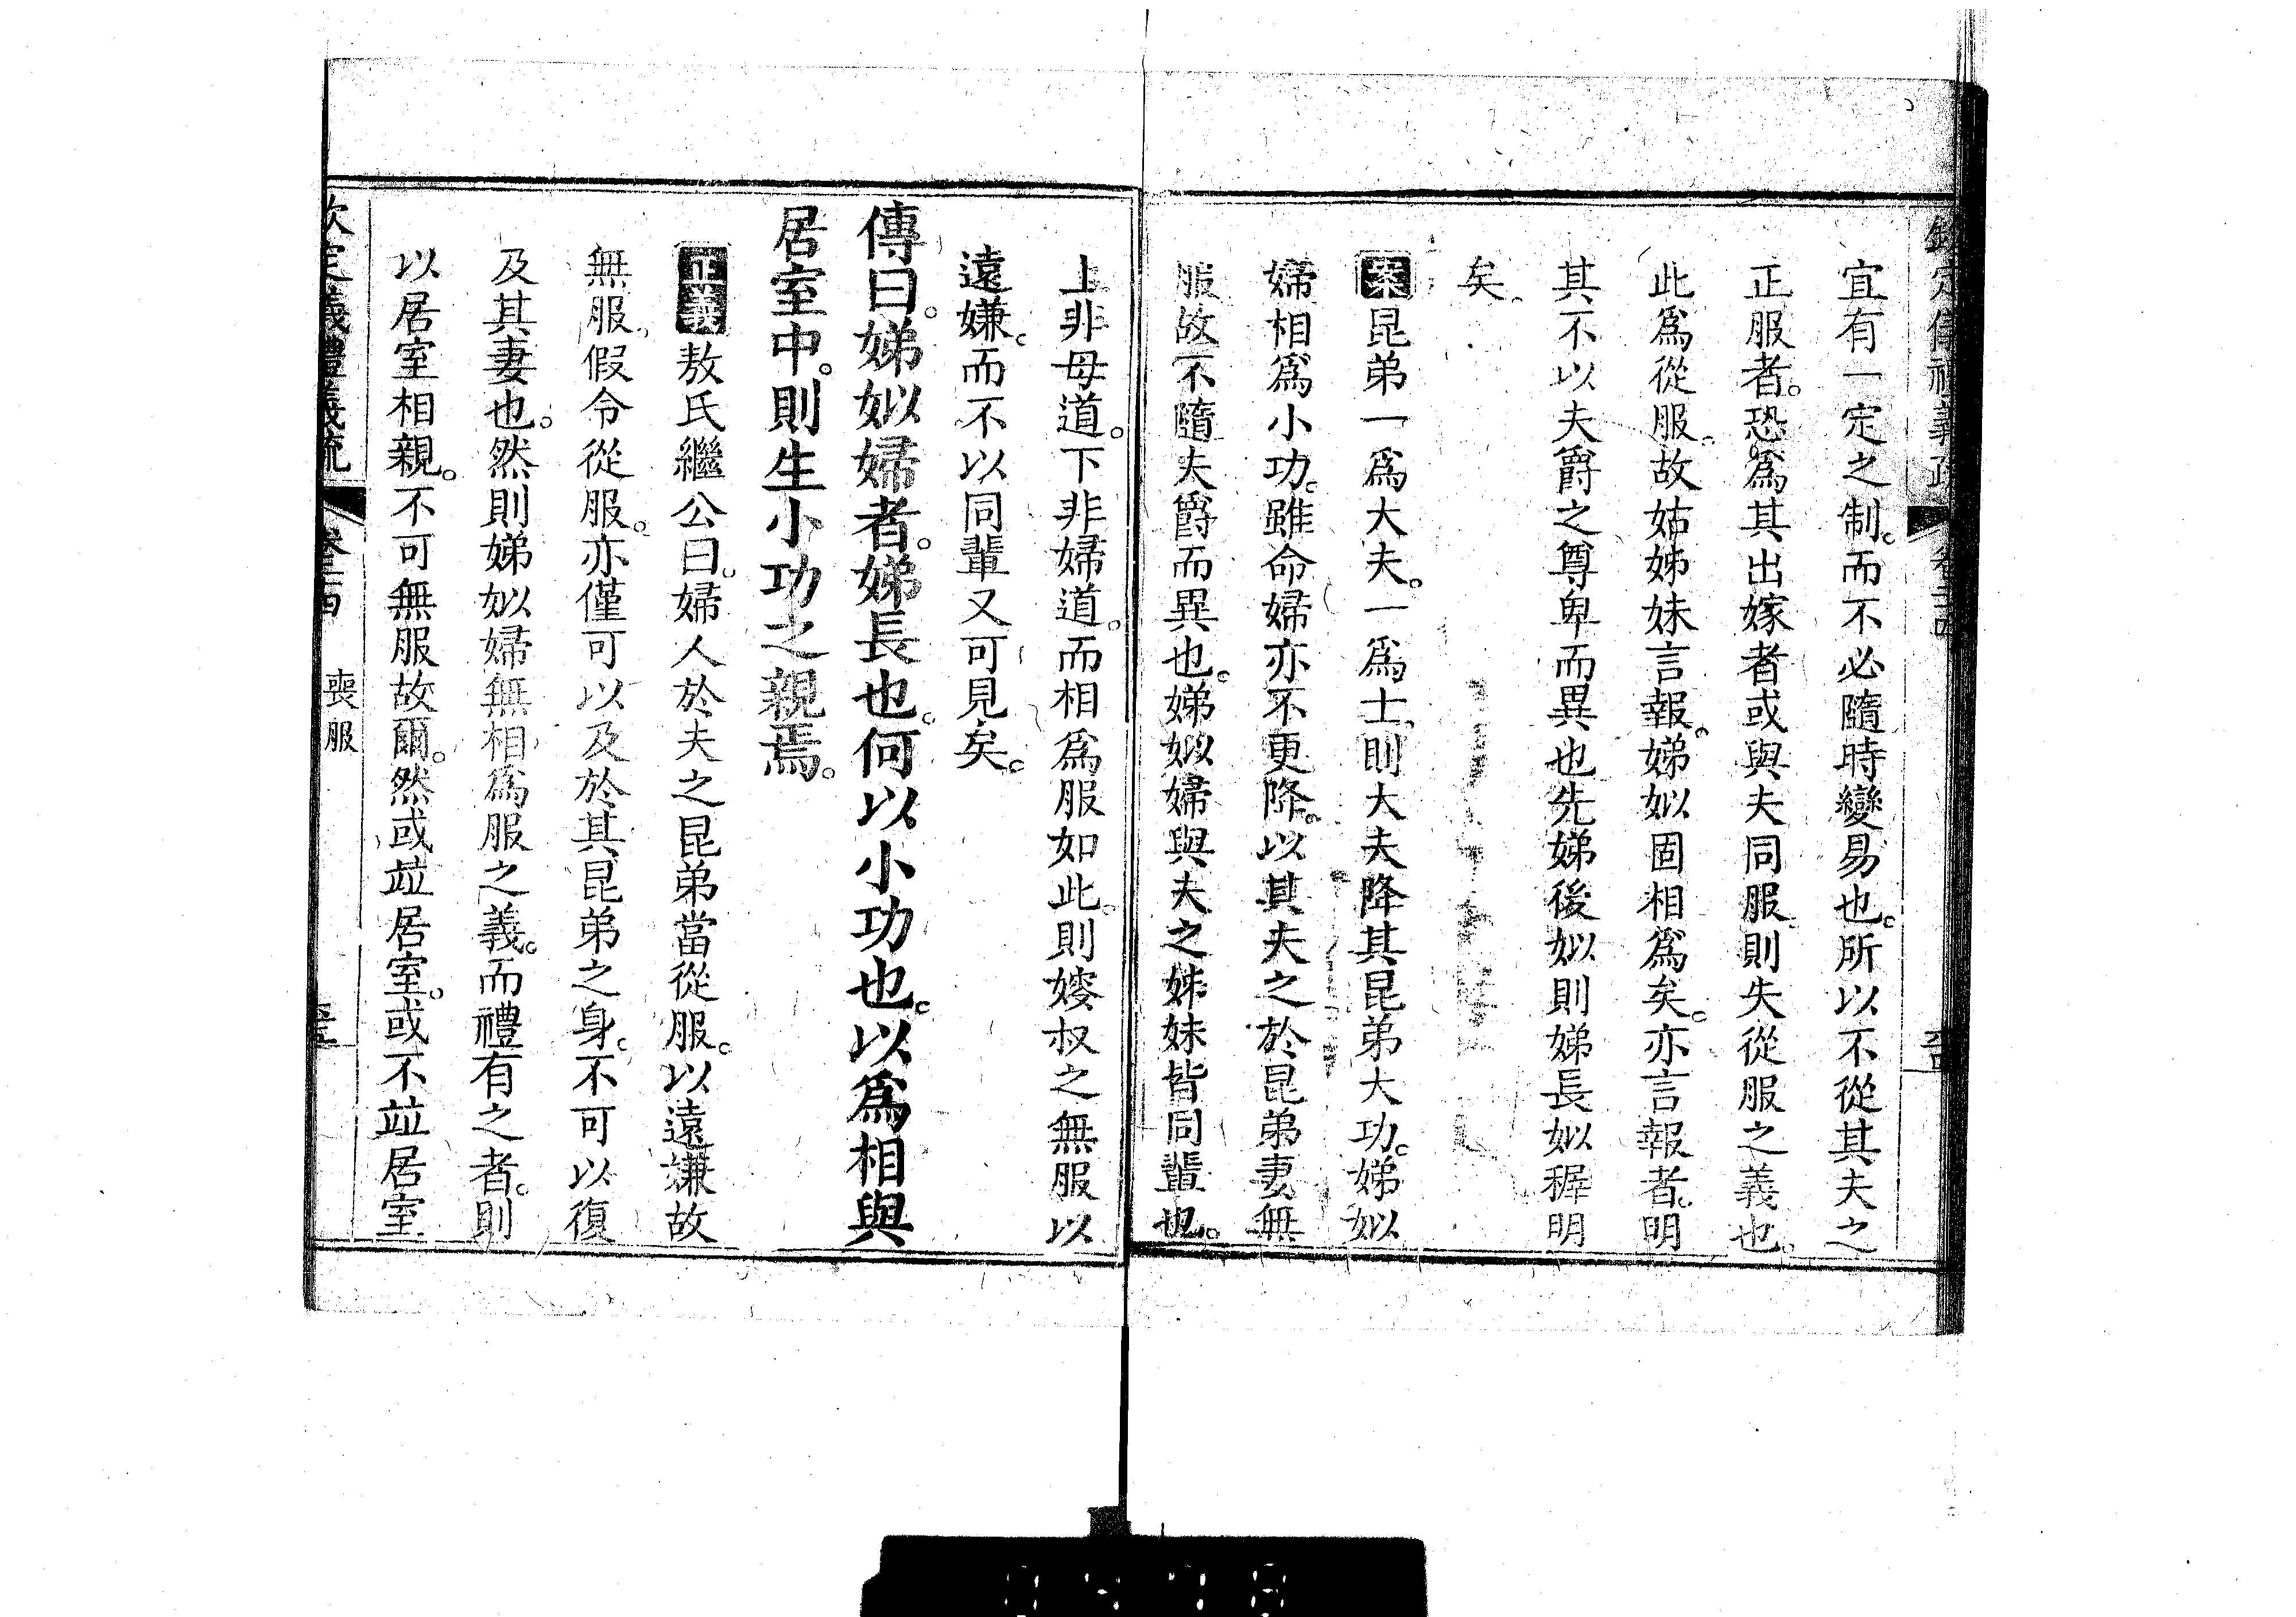 欽定儀禮義疏 卷二十四
宜有一定之制。而不必隨時變易也。所以不從其夫之
正服者。恐爲其出嫁者或與夫同服。則失從服之義也。
此爲從服。故姑姊妹言報。娣姒固相爲矣。亦言報者。明
其不以夫爵之尊卑而異也先娣後姒則娣長姒穉明
矣。
案昆弟一爲大夫。一爲士。則大夫降其昆弟大功。娣姒
婦相爲小功。雖命婦亦不更降。以其夫之於昆弟妻無
服故不隨夫爵而異也。娣姒婦與夫之姊妹皆同輩也。
上非母道。下非婦道。而相爲服如此。則嫂叔之無服以
遠嫌。而不以同輩又可見矣。
傳曰。娣姒婦者。娣長也。何以小功也。以爲相與
居室中。則生小功之親焉。
正義敖氏繼公曰。婦人於夫之昆弟當從服。以遠嫌故
無服。假令從服。亦僅可以及於其昆弟之身。不可以復
及其妻也。然則娣姒婦無相爲服之義。而禮有之者。則
以居室相親。不可無服故爾。然或竝居室。或不竝居室
欽定義禮義疏 卷二十四 喪服